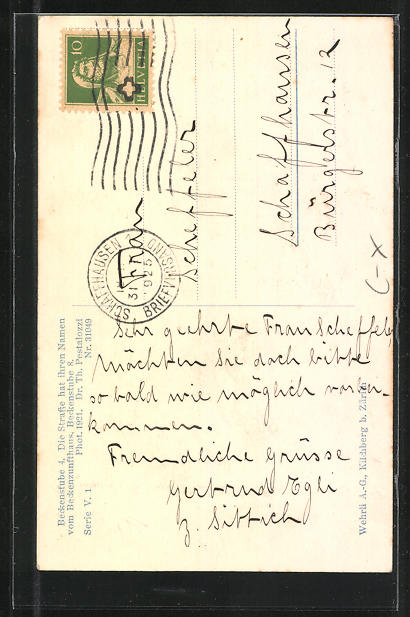 10
HELVETIA
SCHAFFHAUSEN 1
BRIEFVERSAND
31
1925
Frau
Scheffeler
Schaffhausen
Bürgelstr. 12
C-X
Beckenstube 4. Die Straße hat ihren Namen
vom Beckenzunfthaus, Beckenstube 8.
Phot. 1921. Dr. Th. Pestalozzi
Serie V. 1 Nr. 31049
Sehr geehrte Frau Scheffeler
möchten Sie doch bitte
so bald wie möglich vorbei-
kommen.
Freundliche Grüsse
Gertrud Egli
z. Sittich
Wehrli A.-G., Kilchberg b. Zürich